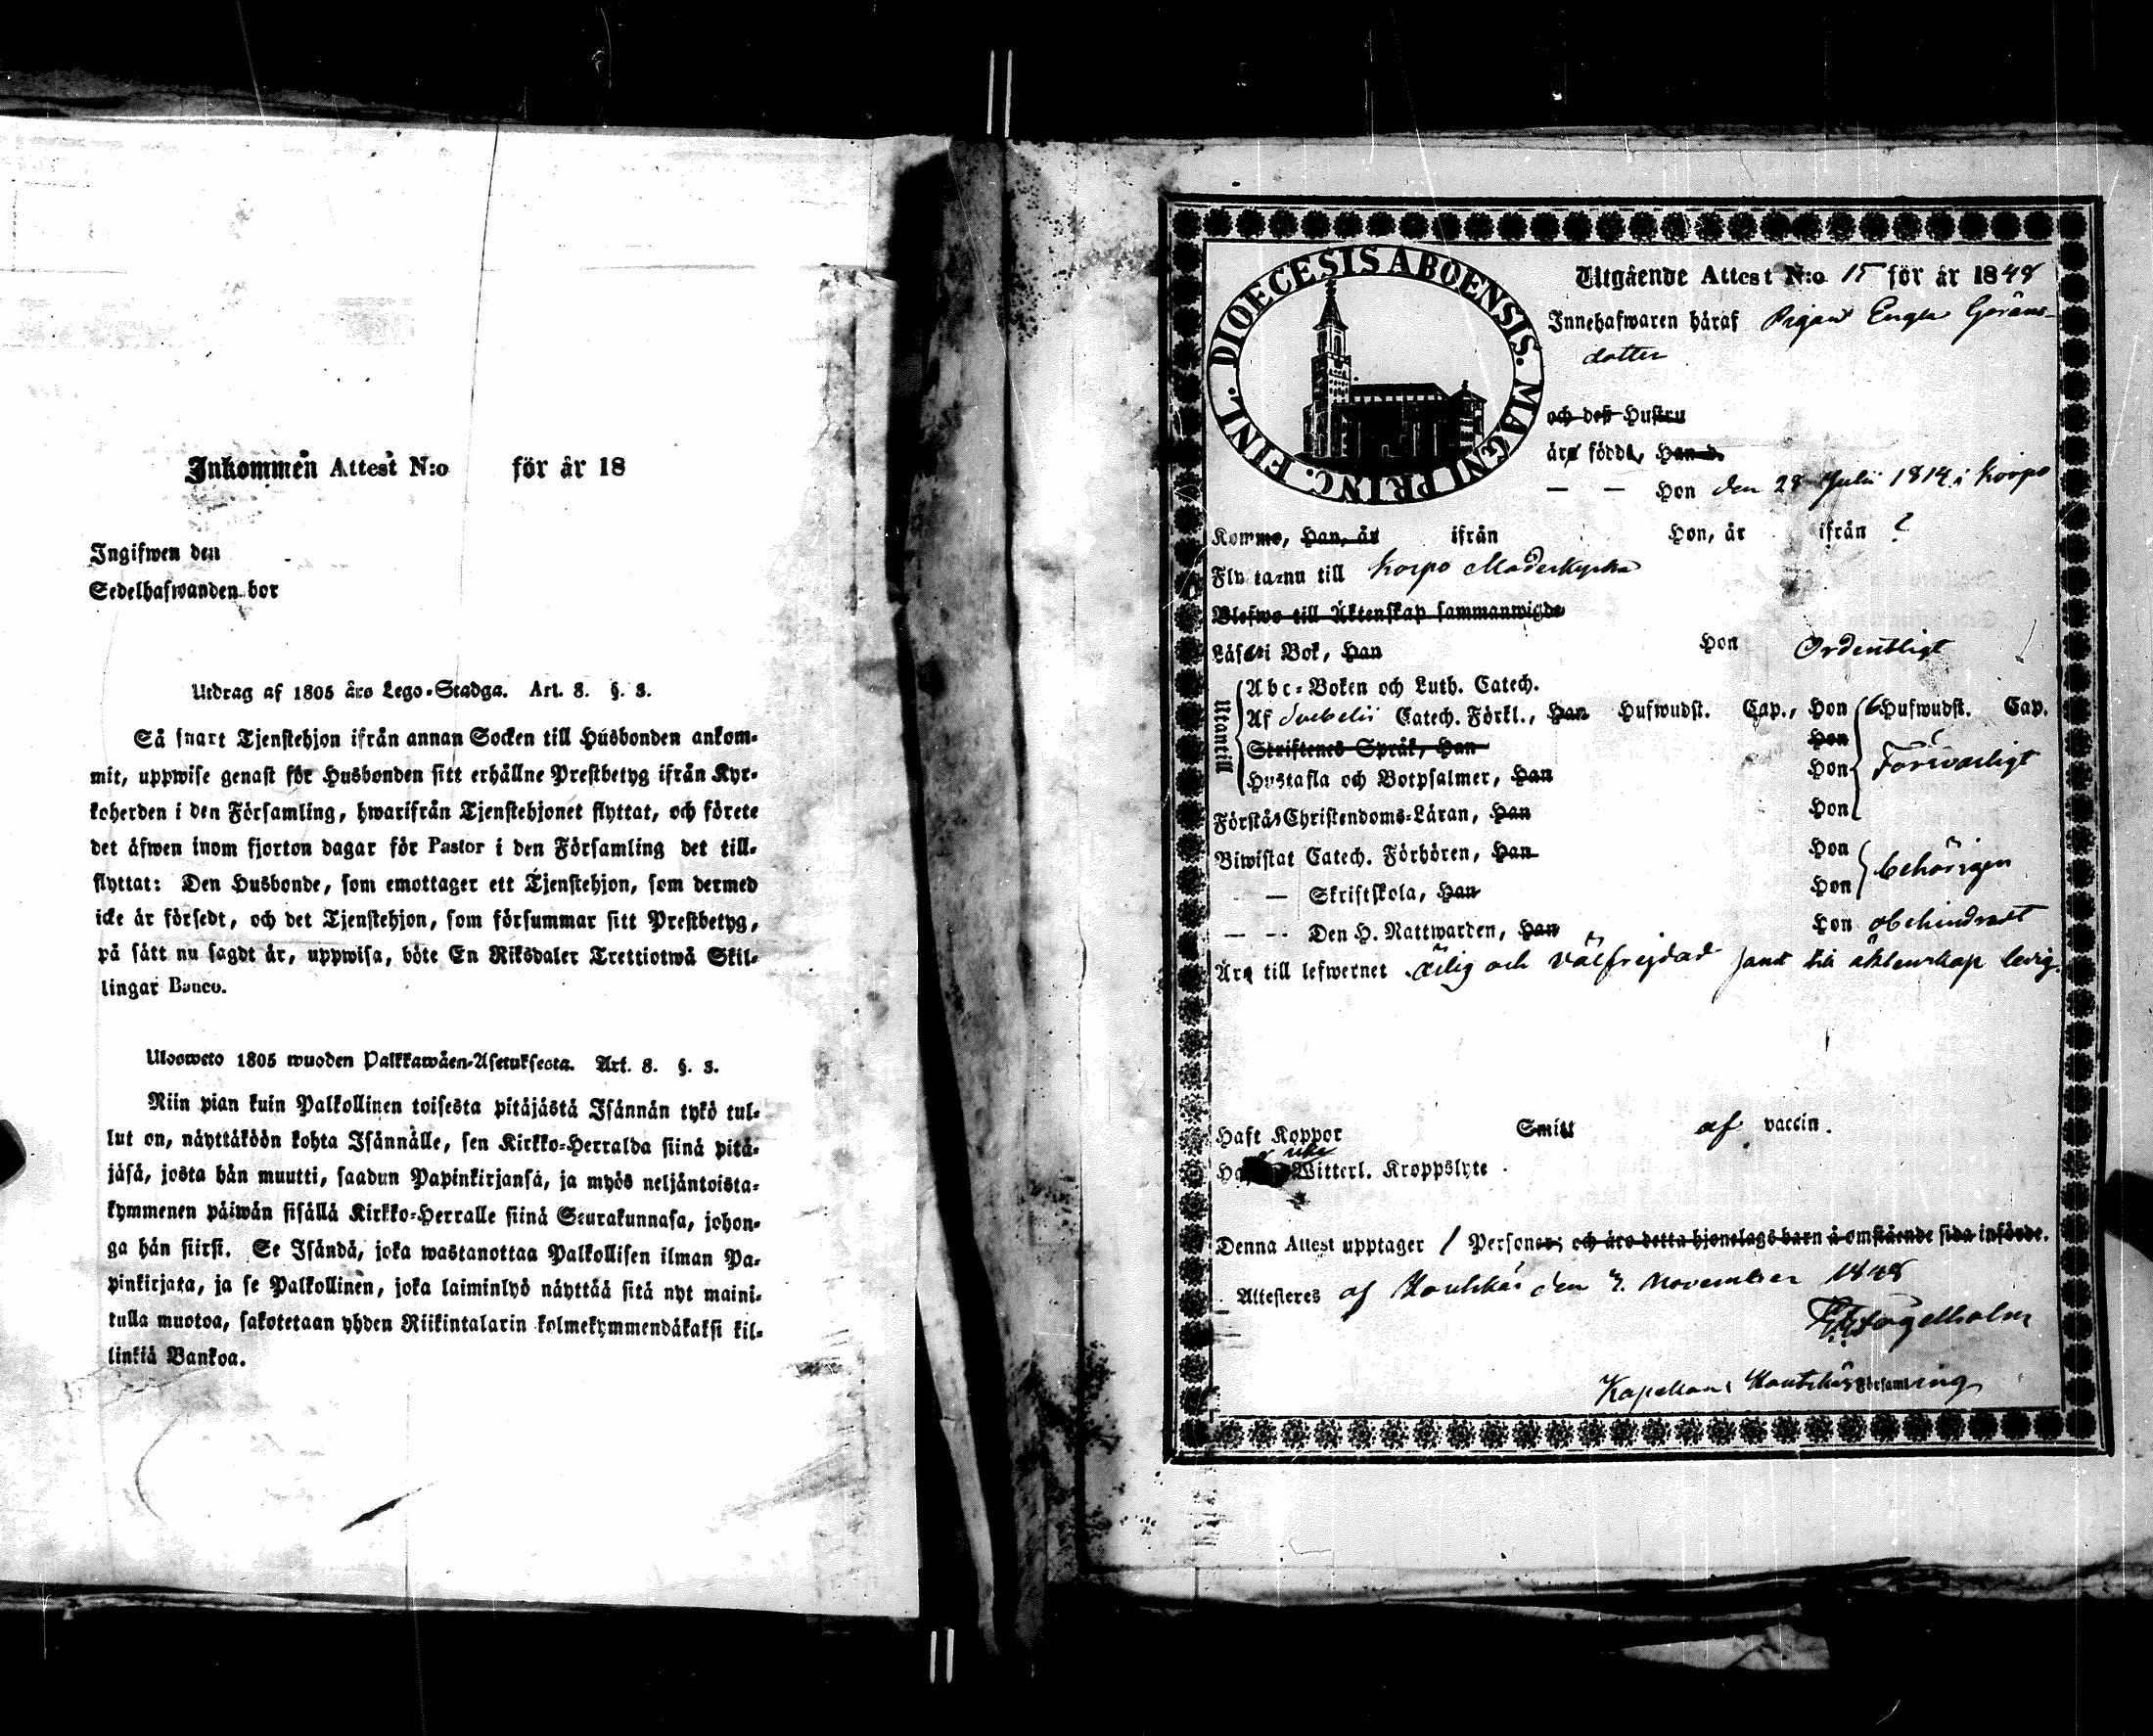 Inkommen Attest N:o för år 18
Ingifwen den
Sedelhafwanden bor
Utdrag af 1805 års Lego-Stadga. Art. 8. §. 3.
Så snart Tjenstehjon ifrån annan Socken till Husbonden ankom-
mit, uppwise genast för Husbonden sitt erhållne Prestbetyg ifrån Kyr-
koherden i den Församling, hwarifrån Tjenstehjonet flyttat, och förete
det äfwen inom fjorton dagar för Pastor i den Församling det till-
flyttat: Den Husbonde, som emottager ett Tjenstehjon, som dermed
icke är försedt, och det Tjenstehjon, som försummar sitt Prestbetyg,
på sätt nu sagdt är, uppwisa, böte En Riksdaler Trettiotwå Skil-
lingar Banco.
Ulosweto 1805 wuoden Palkkawäen-Asetuksesta. Art. 8. §. 3.
Niin pian kuin Palkollinen toisesta pitäjästä Isännän tykö tul-
lut on, näyttäköön kohta Isännälle, sen Kirkko-Herralda siinä pitä-
jäsä, josta hän muutti, saadun Papinkirjansa, ja myös neljäntoista-
kymmenen päiwän sisällä Kirkko-Herralle siinä Seurakunnasa, johon-
ga hän siirsi. Se Isändä, joka wastanottaa Palkollisen ilman Pa-
pinkirjata, ja se Palkollinen, joka laiminlyö näyttää sitä nyt maini-
tulla muotoa, sakotetaan yhden Riikintalarin kolmekymmendäkaksi kil-
linkiä Bankoa.
DIOECESIS ABOENSIS. MAGNI PRINC. FINL.
Utgående Attest N:o 15 för år 1848
Innehafwaren häraf Pigan Enga Görans-
dotter
och deß Hustru
äro födde, Han d.
— — Hon den 28 Julii 1814 i Korpo
Komme, Han, år ifrån Hon, år ifrån ?
Flytta nu till Korpo Moderkyrka
Blefwo till Äktenskap sammanwigde
Läser i Bok, Han Hon Ordentligt
Utantill
Abc-Boken och Luth. Catech.
Af Svebelii Catech. Förkl., Han Hufwudst. Cap., Hon 6 Hufwudst. Cap.
Skriftenes Språk, Han Hon
Hustafla och Botpsalmer, Han Hon Försvarligt
Förstår Christendoms-Läran, Han Hon
Biwistat Catech. Förhören, Han Hon
— Skriftskola, Han Hon behörigen
— — Den H. Nattwarden, Han Hon obehindradt
Äro till lefwernet ärlig och välfrejdad samt till äktenskap ledig.
Haft Koppor Smitt af vaccin.
icke
Witterl. Kroppslyte
Denna Attest upptager 1 Personer; och äro detta hjonelags barn å omstående sida införde.
Attesteres af Houtskär den 3. November 1848
Fogelholm
Kapellan i Houtskärs Församling